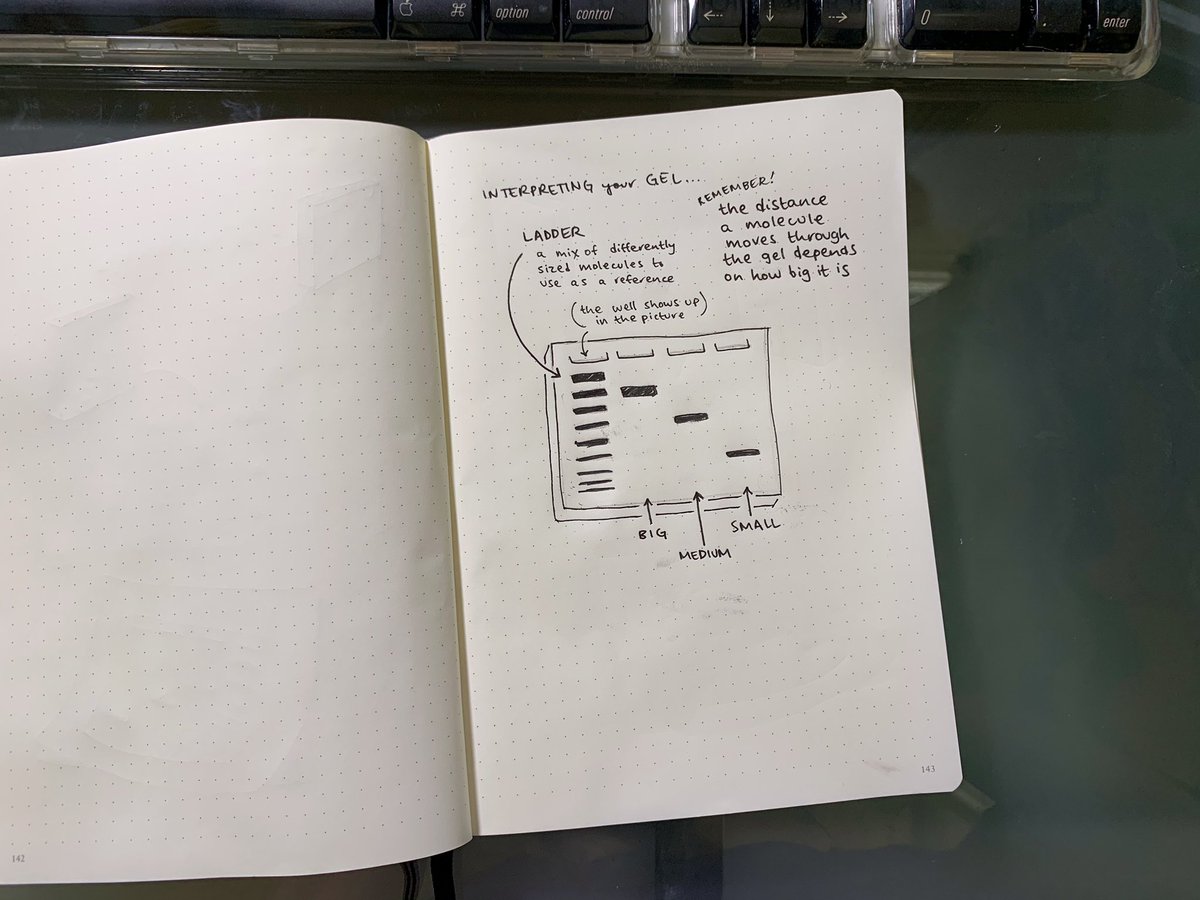 ⌘
option
control
0
.
enter
INTERPRETING your GEL...
REMEMBER!
the distance
a molecule
moves through
the gel depends
on how big it is
LADDER
a mix of differently
sized molecules to
use as a reference
(the well shows up
in the picture)
BIG
MEDIUM
SMALL
142
143